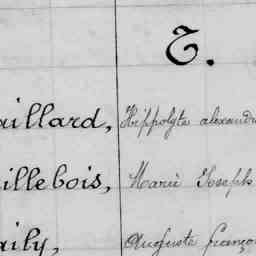 T.
aillard, Hippolyte alexandr
illebois, Marie Joseph
aily, Auguste franço